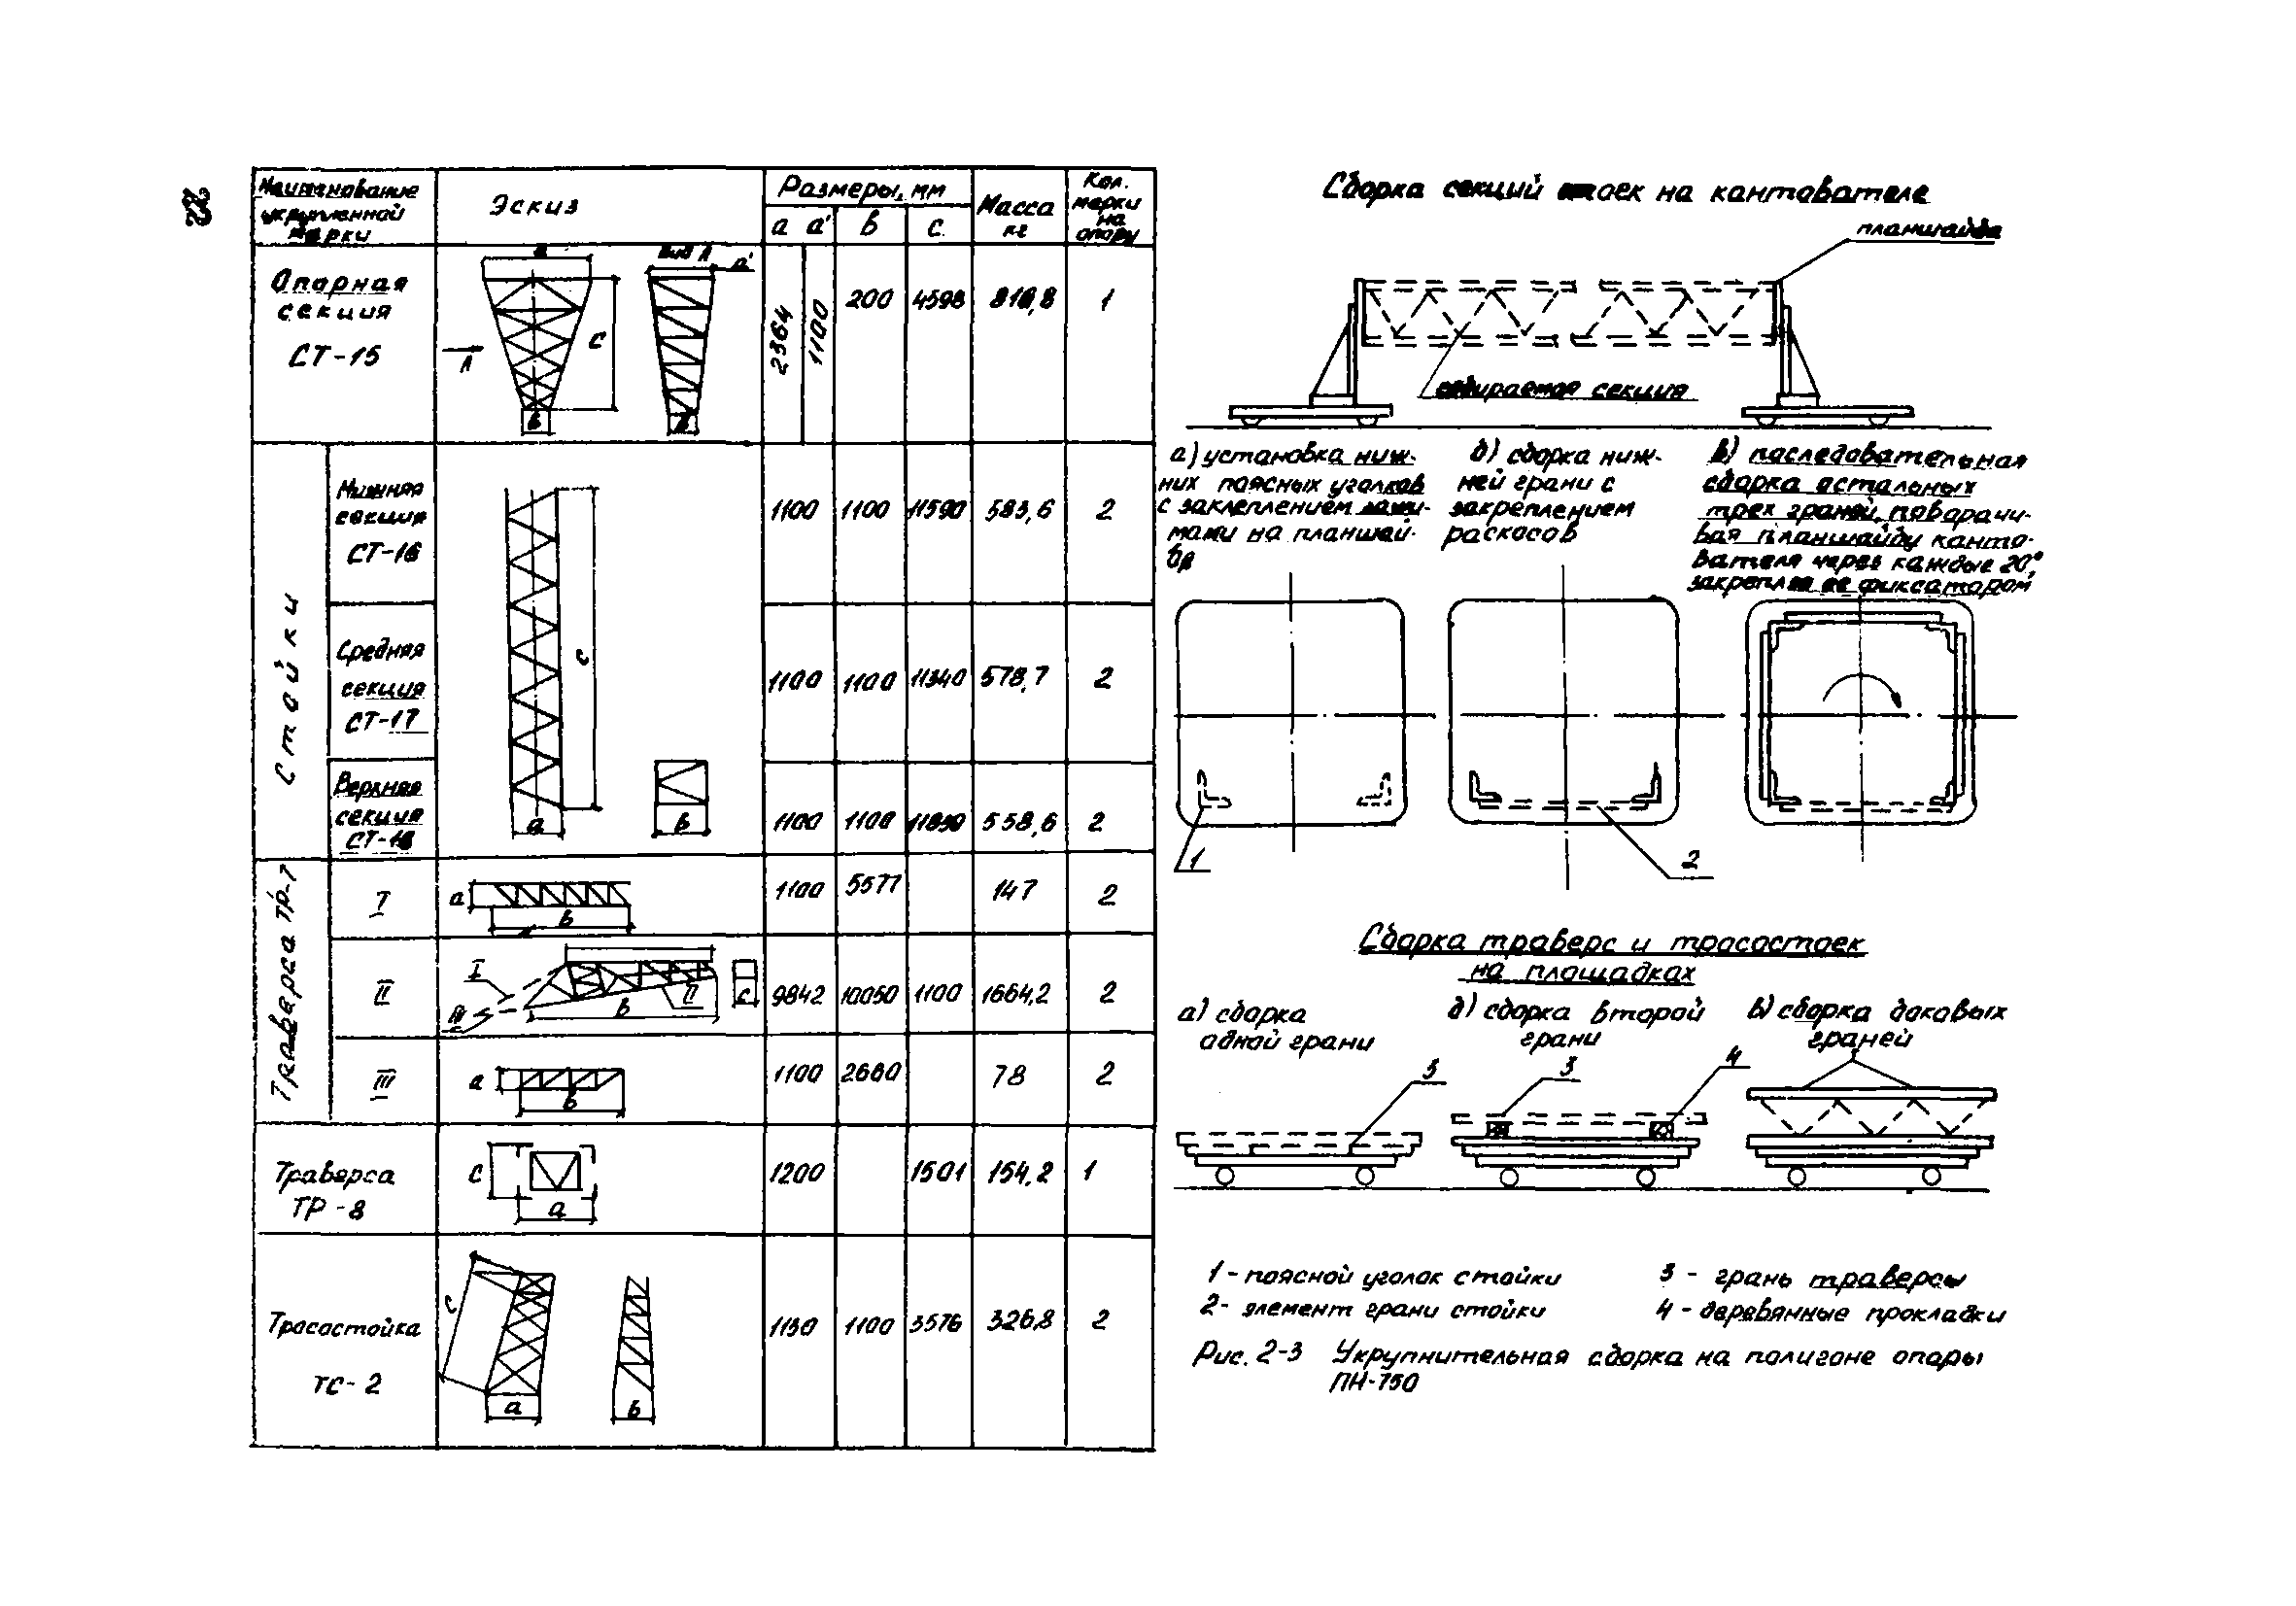 22
Наименование
укрупненной
марки
Эскиз
Размеры, мм
а а' в с
Масса
кг
Кол.
марки
на
опору
Опорная
секция
СТ-15
А
а
с
в
Вид А
а'
2364
1100
200 4598 1
Стойки
Нижняя
секция
СТ-16
1100 1100 11590 583,6 2
Средняя
секция
СТ-17
с
1100 1100 11340 578,7 2
Верхняя
секция
СТ-18
а
в
1100 1100 558,6 2
Траверса ТР-7
I
а
в
1100 5577 147 2
II
I
III
II
в
с
9842 10050 1100 1664,2 2
III
а
в
1100 2660 78 2
Траверса
ТР-8
с
а
1200 1501 154,2 1
Тросостойка
ТС-2
с
а
в
1130 1100 3576 326,8 2
Сборка секций стоек на кантователе
планшайба
собираемая секция
а) установка ниж-
них поясных уголков
с закреплением зажи-
мами на планшай-
бе
б) сборка ниж-
ней грани с
закреплением
раскосов
в) последовательная
сборка остальных
трех граней, поворачи-
вая планшайбу канто-
вателя через каждые 20°,
закрепляя ее фиксатором
1
2
Сборка траверс и тросостоек
на площадках
а) сборка
одной грани
б) сборка второй
грани
в) сборка боковых
граней
3
3
4
1 - поясной уголок стойки
2 - элемент грани стойки
3 - грань траверсы
4 - деревянные прокладки
Рис. 2-3 Укрупнительная сборка на полигоне опоры
ПН-750